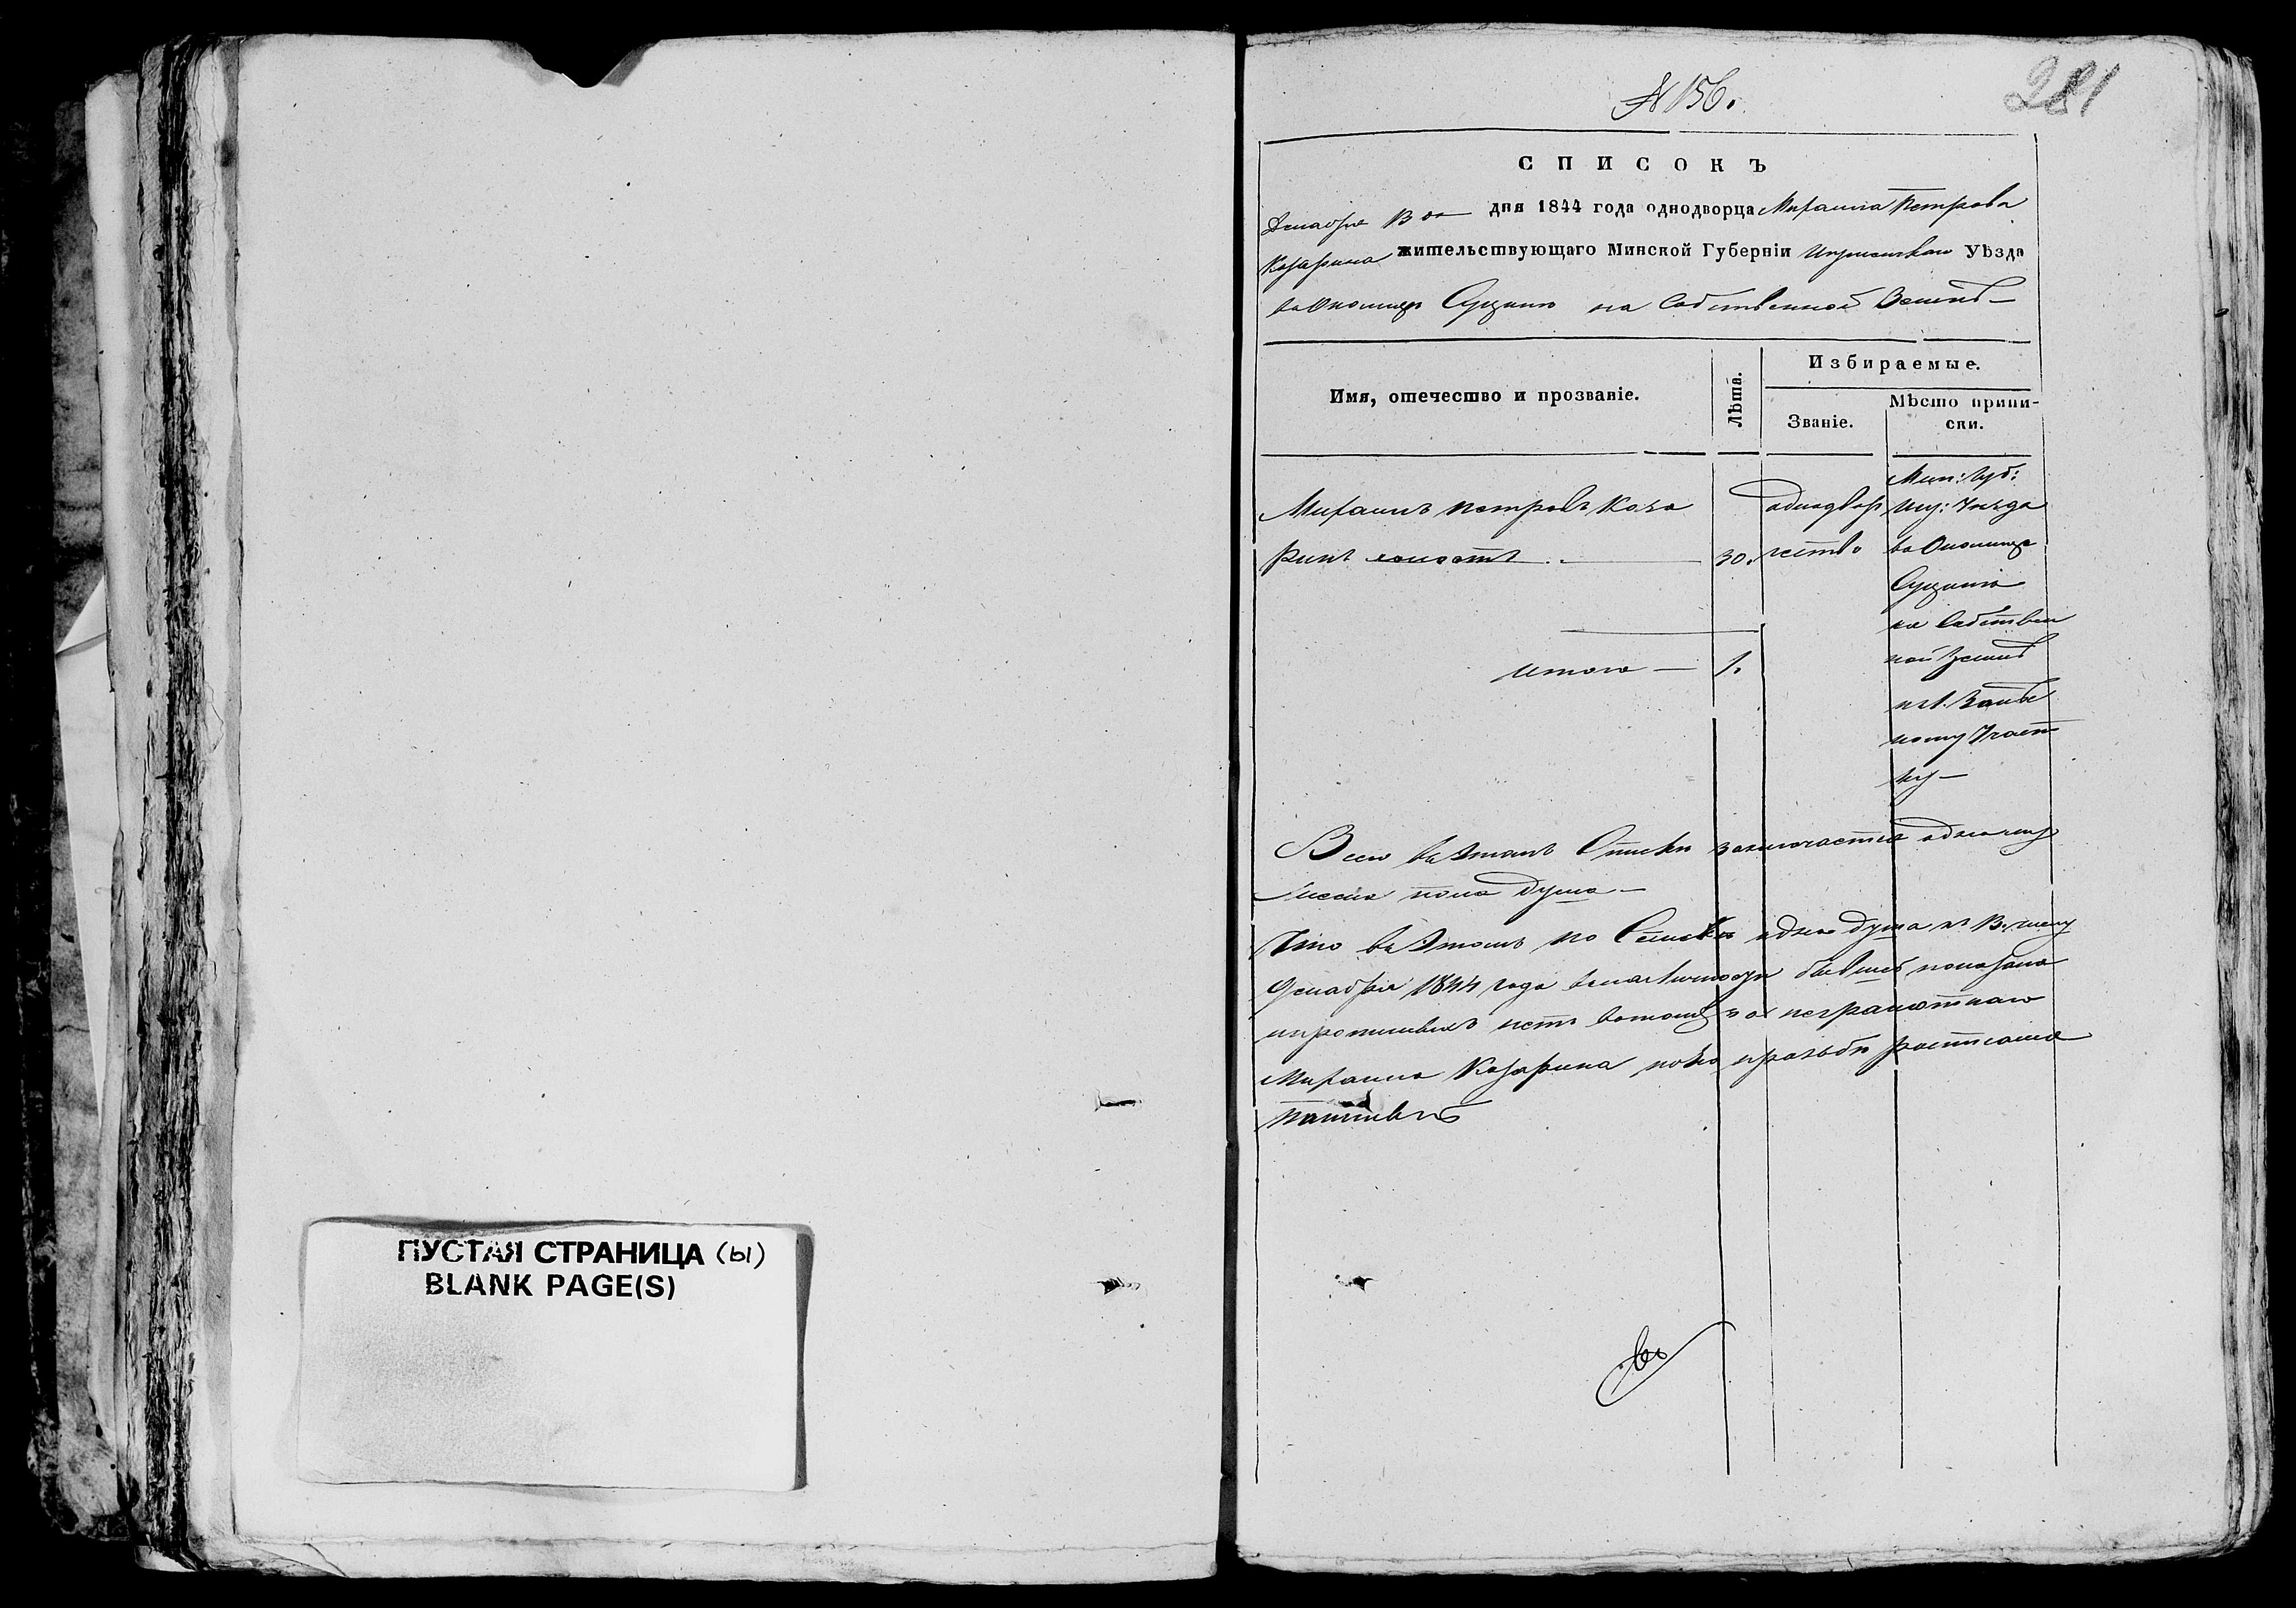 ПУСТАЯ СТРАНИЦА (ы)
BLANK PAGE(S)
281
№ 156.
СПИСОКЪ
Декабря 13 го дня 1844 года однодворца Михаила Петрова
Козарина жительствующаго Минской Губерніи Игуменскаго Уѣзда
въ Околицѣ на Собственной Землѣ —
Имя, отечество и прозваніе.
Лѣта.
Избираемые.
Званіе.
Мѣсто припи-
ски.
Михаилъ Петровъ Коза
ринъ холостъ . —
30.
однодвор
чество
Мин: Губ:
Игу: Уѣзда
въ Околицѣ
на Собствен
ной Землѣ
ному Участ
ку —
итого — 1.
Всего въ этомъ Списки заключается одна муж
пола душа —
Что въ этомъ Списки одна душа къ
Декабря 1844 года показана
нетъ въ томъ за неграмотнаго
Михаила Козарина по его прозьбѣ росписался